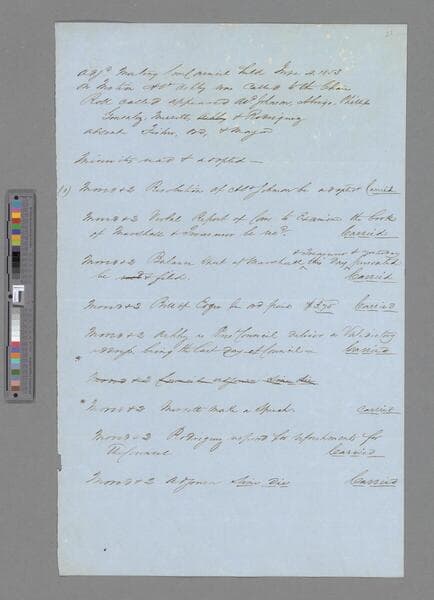 Adjd Meeting Com Council held May 4, 1853
On Motion Ald Ashby was called to the Chair
Roll called appeared Ald Johnson, Abrego, Phillip
Gonzaly, Merritt, Ashby & Rodriguez
absent Fisher, & Mayor
Minutes read & adopted —
(1) Moved & 2 Resolution of Ald Johnson be adopted Carried
Moved & 2 Verbal Report of Com to Examine the book
of Marshall & Treasurer be recd. Carried
& Treasurer &
Moved & 2 Balance Sheet of Marshall this Day presented
be & filed. Carried
Moved & 2 Bill of be ord paid $ Carried
Moved & 2 Ashby as Pres Council deliver a Valedictory
address being the last day of Council — Carried
* Moved & 2 Council adjourn Sine Die
* Moved & 2 Merritt make a Speech. Carried
Moved & 2 Rodriguez refreshments for
the Council Carried
Moved & 2 Adjourn Sine Die Carried